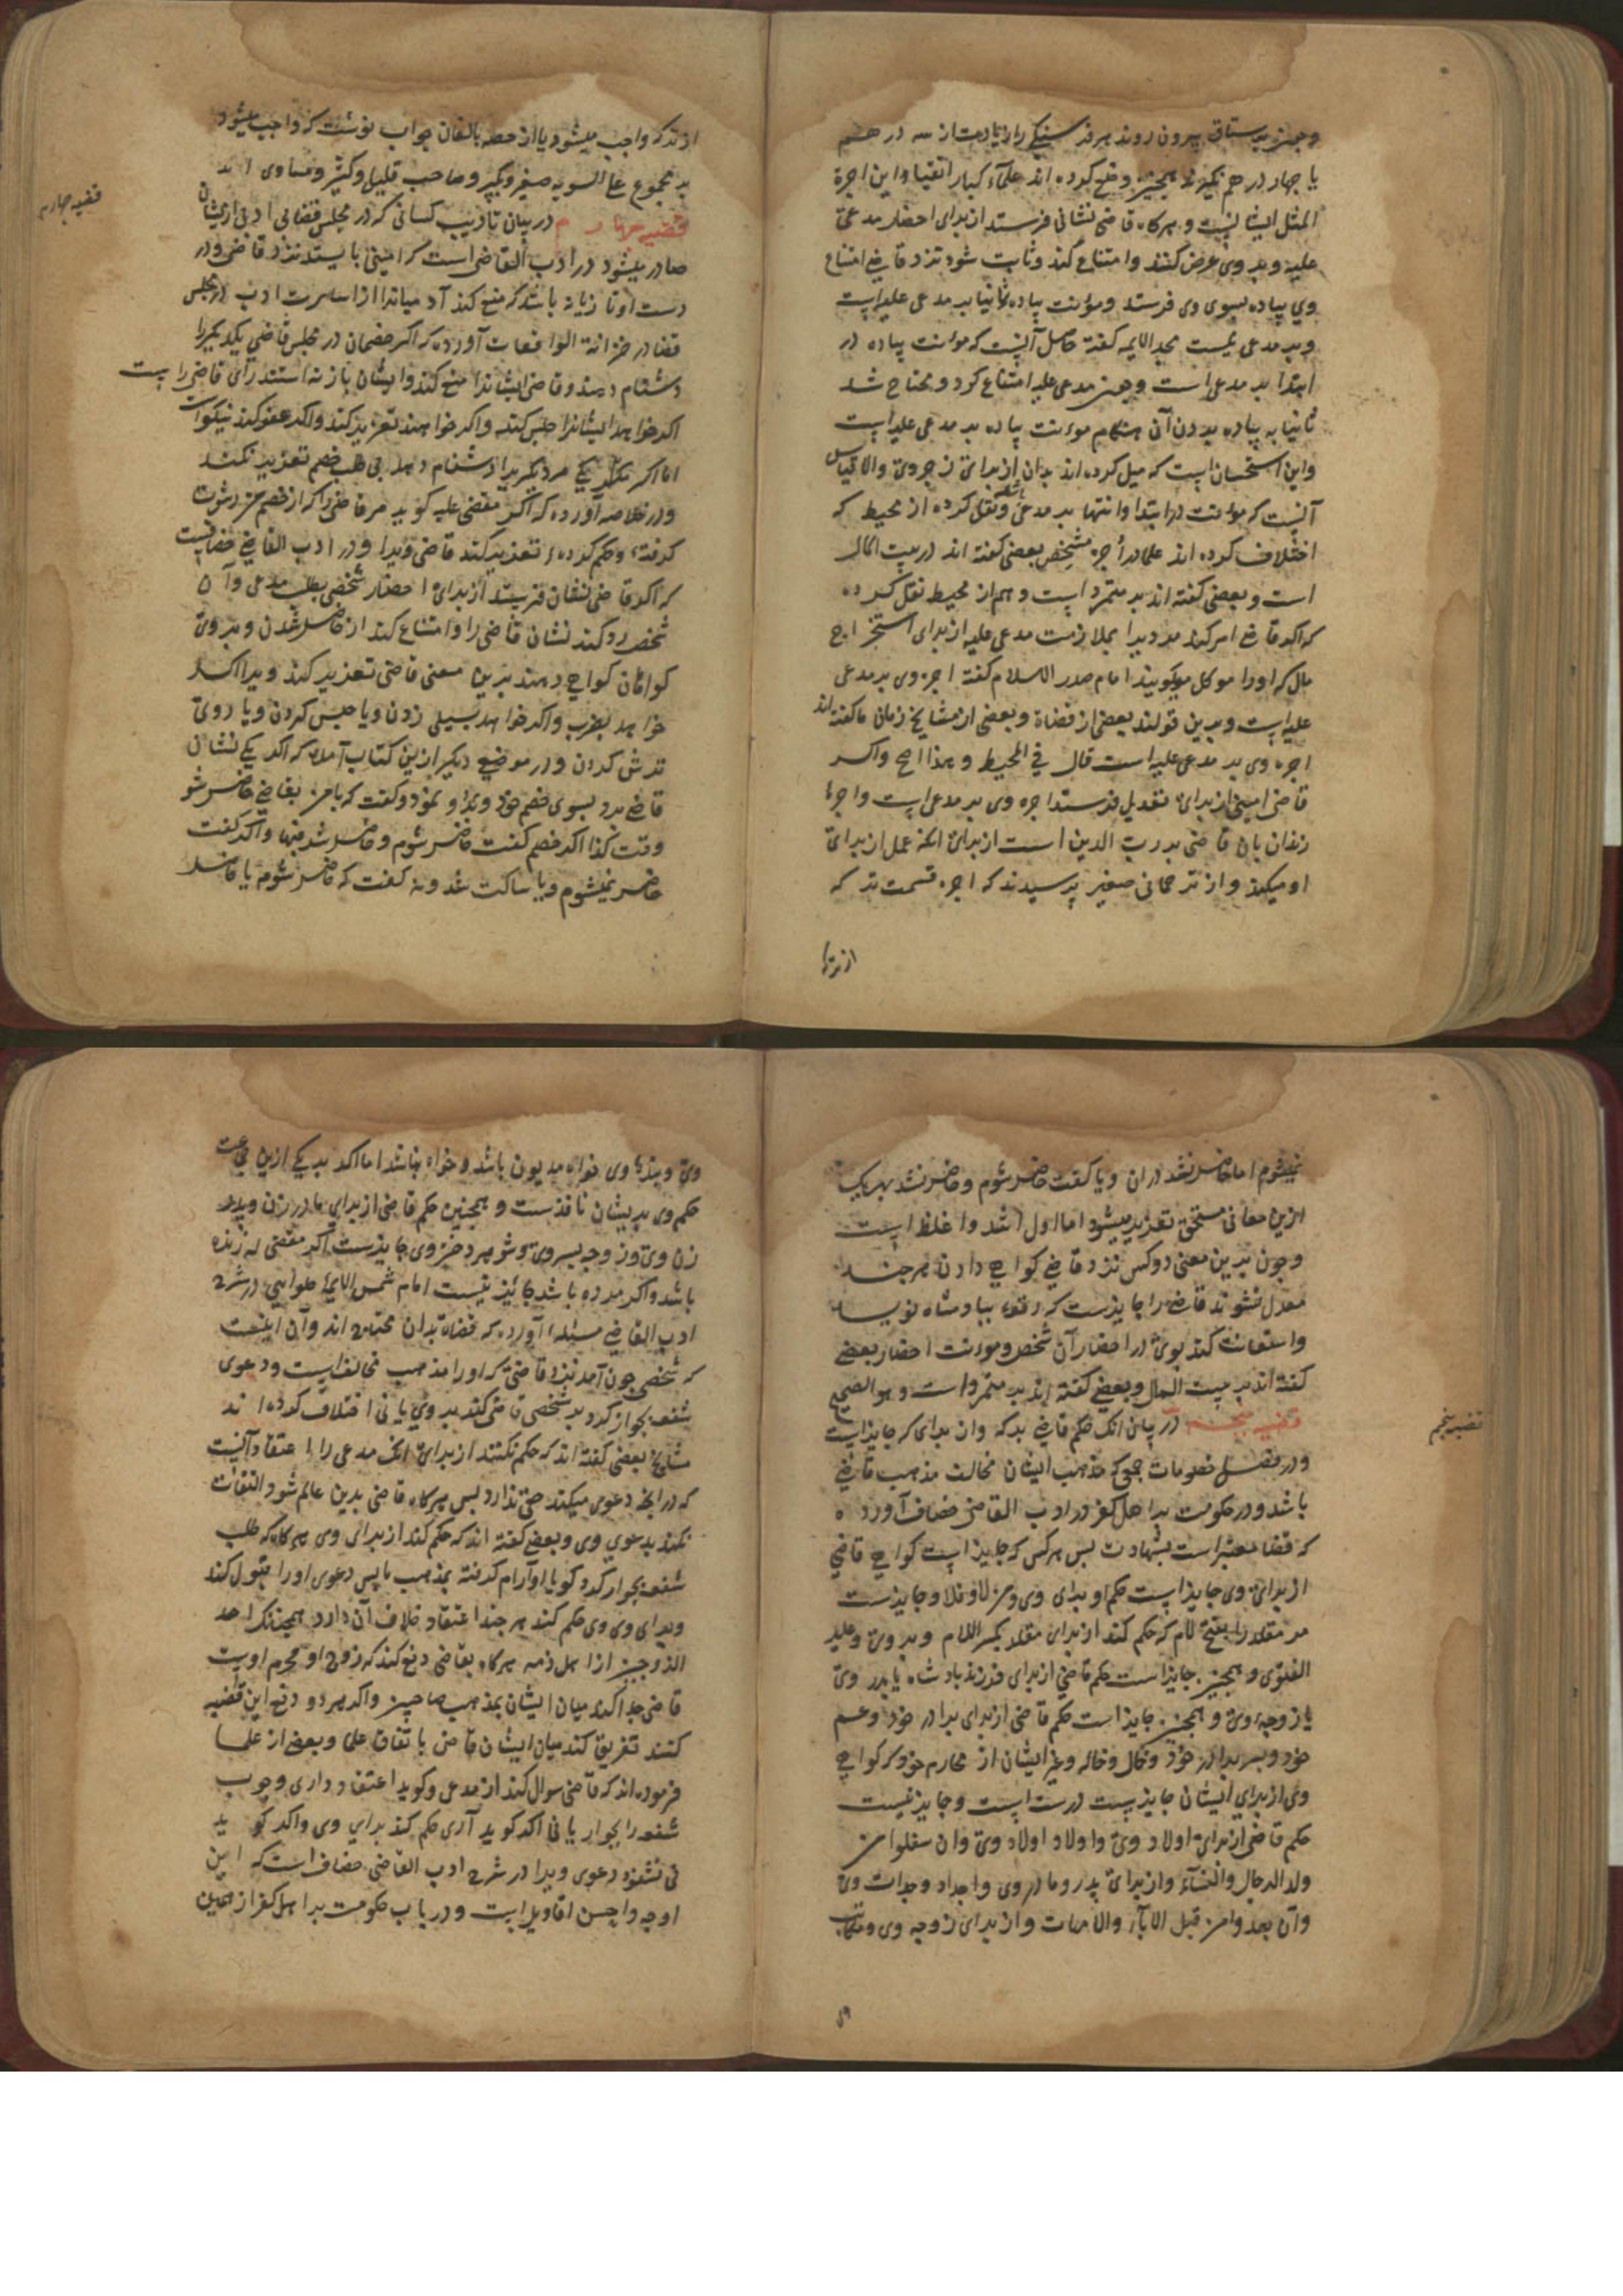 وچون برستاق بیرون روند بهر فرسنکی را زیادت از سه درهم
یا چهار درهم نکیرند همچنین وضع کرده اند علمآء کبار اتقیا و این اجرة
المثل ایشانست و هرکاه قاضی نشانی فرستد از برای احضار مدعی
علیه و بر وی عرض کنند و امتناع کند و ثابت شود نزد قاضی امتناع
وی پیاده بسوی وی فرستد و مؤنت پیاده ثانیا بر مدعی علیه است
و بر مدعی نیست مجد الایمه کفته حاصل آنست که موئنت پیاده در
ابتدا بر مدعی است و چون مدعی علیه امتناع کرد و محتاج شد
ثانیا به پیاده بردن آن هنکام موئنت پیاده بر مدعی علیه است
و این استحسان است که میل کرده اند بدان از برای زجر وی والا قیاس
آنست که موئنت در ابتدا و انتها بر مدعی باشد و نقل کرده از محیط که
اختلاف کرده اند علما در اجرة مشخص بعضی کفته اند در بیت المال
است و بعضی کفته اند بر متمرد است و هم از محیط نقل کرده
که اکر قاضی امر کند مردیرا بملازمت مدعی علیه از برای استخراج
مال که اورا موکل میکویند امام صدر الاسلام کفته اجره وی بر مدعی
علیه است و برین قولند بعضی از قضاة و بعضی از مشایخ زمان ما کفته اند
اجره وی بر مدعی علیه است قال فی المحیط و هذا اصح و اکر
قاضی امینی از برای تعدیل فرستد اجره وی بر مدعی است و اجرة
زندان بان قاضی بر رب الدین است از برای انکه عمل از برای
او میکند و از ترجمانی صغیر پرسیدند که اجره قسمت ترکه
از ترکه
از ترکه واجب میشود یا از حصه بالغان جواب نوشت که واجب میشود
بر مجموع علی السویه صغیر و کبیر و صاحب قلیل و کثیر و مساوی اند
قضیه چهارم
قضیه چهارم در بیان تادیب کسانی که در مجلس قضا بی ادبی ازیشان
صادر میشود در ادب القاضی است که امینی بایستد نزد قاضی و در
دست او تازیانه باشد که منع کند آدمیانرا از اساءت ادب در مجلس
قضا در خزانة الواقعات آورده که اکر خصمان در مجلس قاضی یکدیکر را
دشنام دهند و قاضی ایشانرا منع کند و ایشان باز نه ایستند رأی قاضی راست
اکر خواهد ایشانرا حبس کند و اکر خواهند تعزیر کند و اکر عفو کند نیکوست
اما اکر یکی مر دیکریرا دشنام دهد بی طلب خصم تعزیر نکند
و در خلاصه آورده که اکر مقضی علیه کوید مر قاضی را که از خصم من رشوت
کرفتهء و حکم کردهء تعزیر کند قاضی ویرا و در ادب القاضی خصافست
که اکر قاضی نشان فرستد از برای احضار شخصی بطلب مدعی و آن
شخص رد کند نشان قاضی را و امتناع کند از حاضر شدن و بر وی
کواهان کواهی دهند بدین معنی قاضی تعزیر کند ویرا اکر
خواهد بضرب و اکر خواهد بسیلی زدن و یا حبس کردن و یا روی
ترش کردن و در موضع دیکر ازین کتاب آمده که اکر یکی نشان
قاضی برد بسوی خصم خود و برا و نمود و کفت که با من بقاضی حاضر شو
وقت کذا اکر خصم کفت حاضر شوم و حاضر شد فبها و اکر کفت
حاضر نمیشوم و یا ساکت شد و نه کفت که حاضر شوم یا حاضر
نمیشوم اما حاضر نشد دران و یا کفت حاضر شوم و حاضر نشد بهر یک
ازین معانی مستحق تعزیر میشود اما اول اشد و اغلظ است
و چون بدین معنی دو کس نزد قاضی کواهی دادن هرچند
معدل نشوند قاضی را جایزست که رقعهء ببادشاه نویسد
و استعانت کند بوی در احضار آن شخص و موءنت احضار بعضی
کفته اند بر بیت المال و بعضی کفته اند بر متمرد است و هو الصحیح
قضیه پنجم
قضیه پنجم در بیان انک حکم قاضی بر که وان برای که جایز است
و در فصل خصومات جمعی که مذهب ایشان مخالف مذهب قاضی
باشد و در حکومت بر اهل کفر در ادب القاضی خصاف آورده
که قضا معتبر است بشهادت پس هر کس که جایز است کواهی قاضی
از برای وی جایز است حکم او برای وی و من لا فلا و جایزست
مر مقلد را بفتح لام که حکم کند از برای مقلد بکسر اللام و بر وی و علیه
الفتوی و همچنین جایز است حکم قاضی از برای فرزند بادشاه یا پدر وی
یا زوجهء وی و همچنین جایز است حکم قاضی از برای برادر خود و عم
خود و پسر برادر خود و خال و خاله و غیر ایشان از محارم خود که کواهی
وی از برای ایشان جایز است درست است و جایز نیست
حکم قاضی از برای اولاد وی و اولاد اولاد وی وان سفلوا من
ولد الرجال والنسآء و از برای پدر و مادر وی و اجداد و جدات وی
وان بعدوا من قبل الابآء والامهات و از برای زوجه وی و مکاتب
وی و بندهء وی خواه مدیون باشد و خواه نباشد اما اکر بر یکی ازین جماعت
حکم وی بریشان نافذست و همچنین حکم قاضی از برای مادر زن و پدر
زن وی و زوجه پسر وی و شوهر دختر وی جایزست اکر مقضی له زنده
باشد و اکر مرده باشد جائیز نیست امام شمس الایمهٔ حلوایی در شرح
ادب القاضی مسئلهء آورده که قضاة بدان محتاج اند و آن اینست
که شخصی چون آمد نزد قاضی که اورا مذهب مخالف است و دعوی
شفعه بجوار کرد بر شخصی قاضی حکم کند بر وی یا نی اختلاف کرده اند
مشایخ بعضی کفته اند که حکم نکند از برای انک مدعی را اعتقاد آنست
که در انچه دعوی میکند حق ندارد پس هرکاه قاضی بدین عالم شود التفات
نکند بدعوی وی و بعضی کفته اند که حکم کند از برای وی هرکاه که طلب
شفعه بجوار کرد کویا او آرام کرفته بمذهب ما پس دعوی اورا قبول کند
و برای وی حکم کند هرچند اعتقاد خلاف آن دارد همچنانکه احد
الزوجین از اهل ذمه هرکاه بقاضی رفع کند که زوج او محرم اوست
قاضی جدا کند میان ایشان بمذهب صاحبین و اکر هر دو رفع این قضیه
کنند تفریق کند میان ایشان قاضی باتفاق علما و بعضی از علما
فرموده اند که قاضی سوال کند از مدعی و کوید اعتقاد داری وجوب
شفعه را بجوار یا نی اکر کوید آری حکم کند برای وی و اکر کوید
نی نشنود دعوی ویرا در شرح ادب القاضی خصاف است که این
اوجه و احسن اقاویل است و در باب حکومت بر اهل کفر از همین